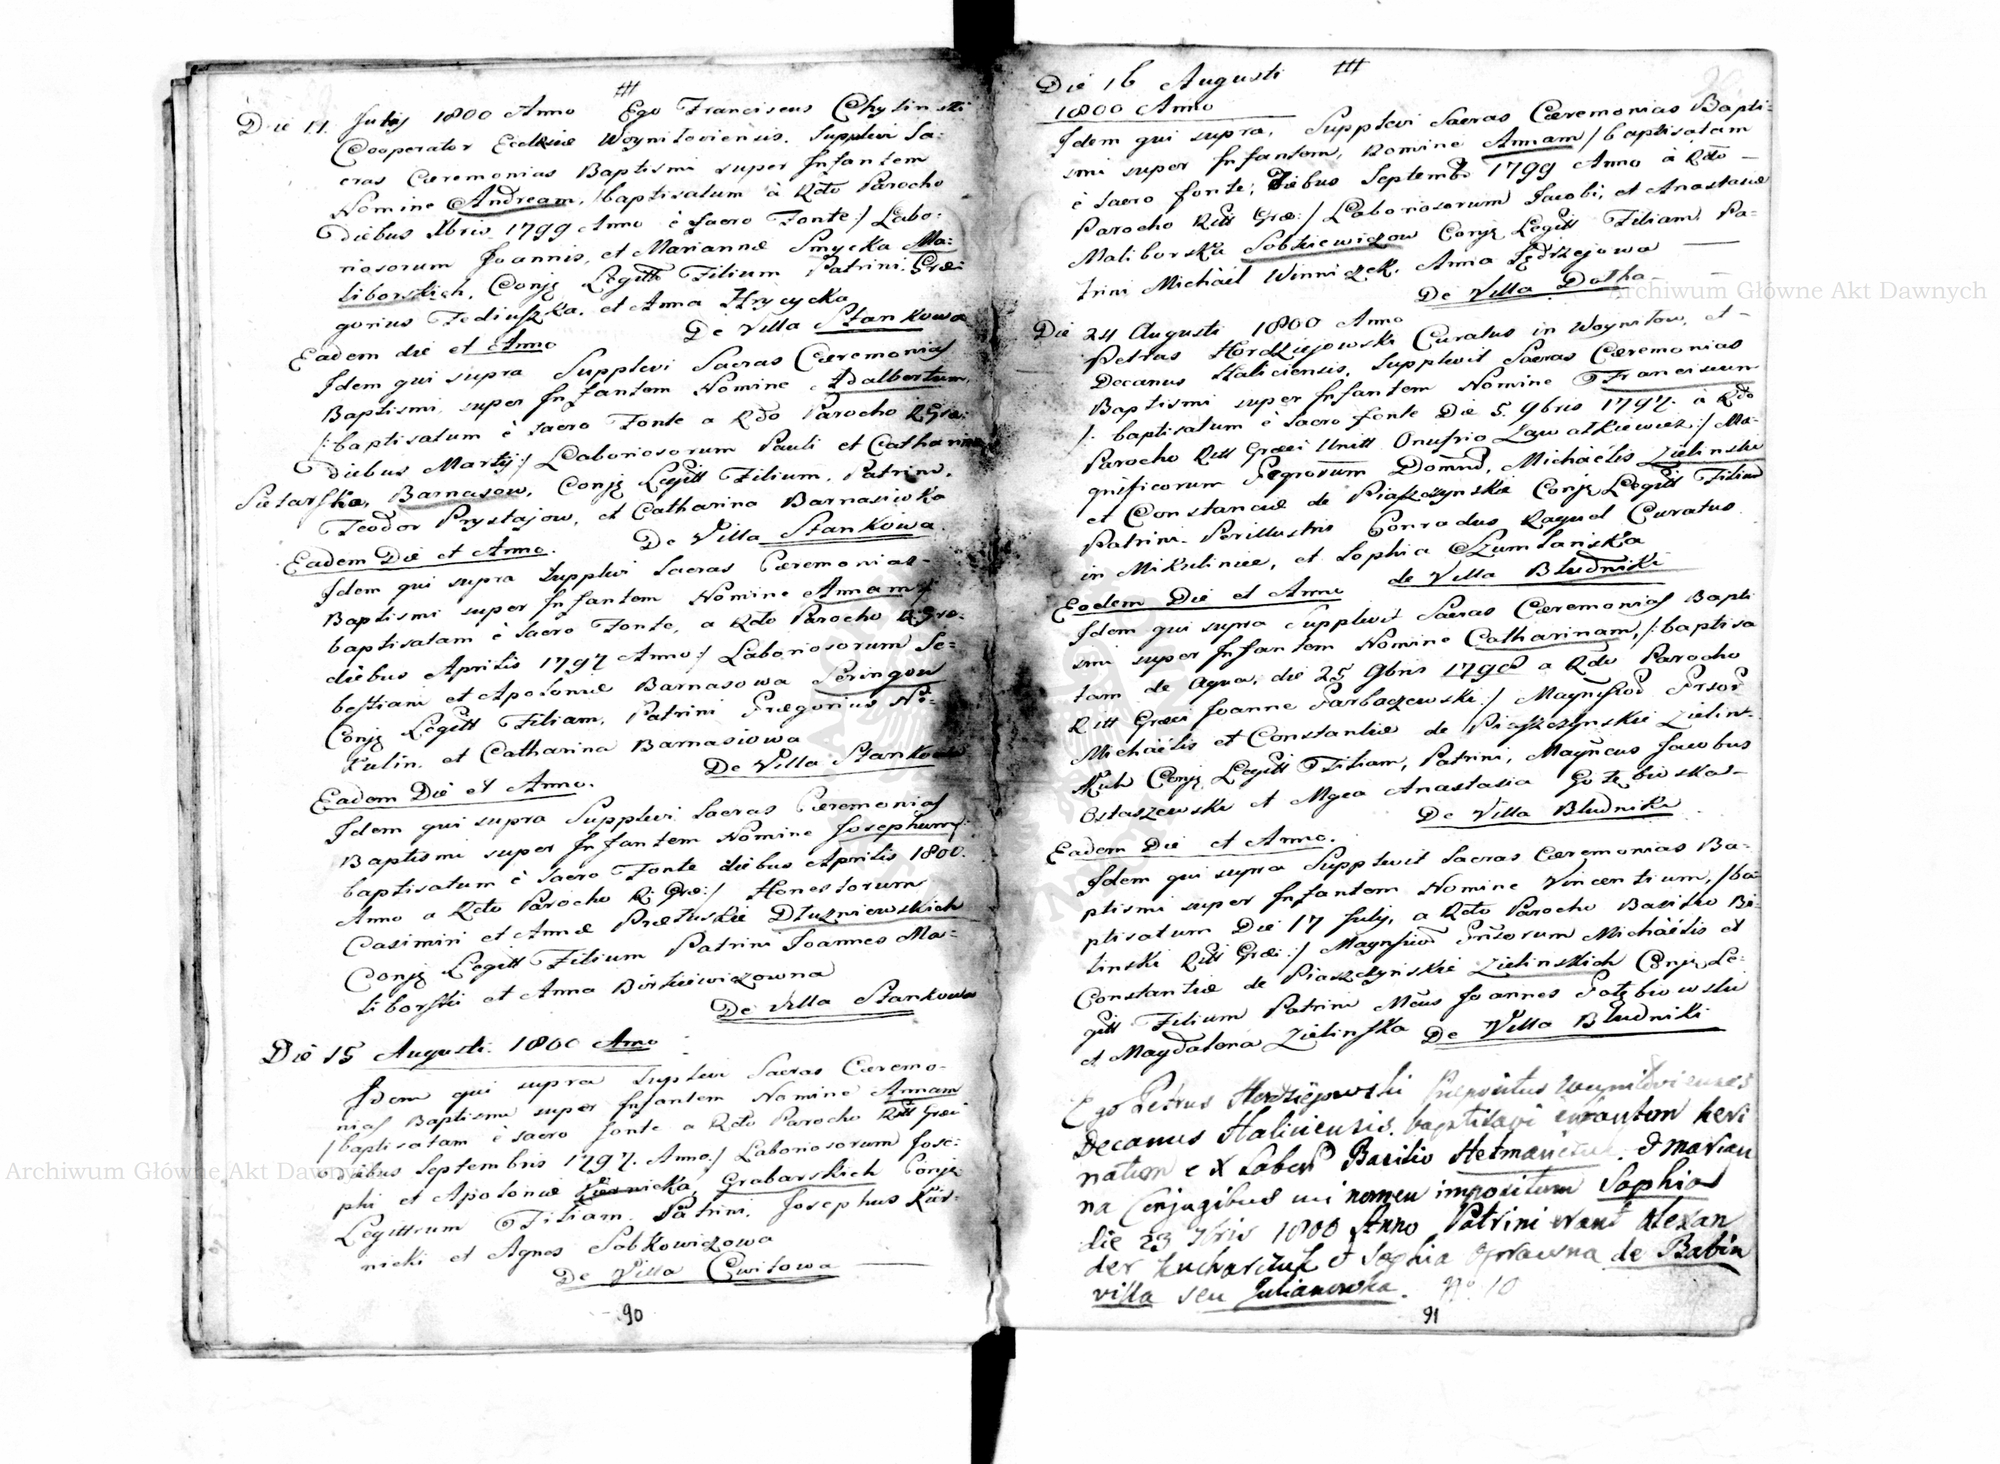 Die 11. July 1800 Anno Ego Franciscus Chylinski
Cooperator Ecclesiæ Woyniloviensis. Supplevi Sa-
cras Cæremonias Baptismi super Infantem
Nomine Andream, /baptisatum à Rdo Parocho
diebus Xbris 1799 Anno è Sacro Fonte:/ Labo:
riosorum Joannis, et Mariannæ Smycka Ma:
liborskich, Conjg Legitt Filium Patrini. Gre:
gorius Fediuszka, et Anna Hrycycka
De Villa Stankowa
Eadem die et Anno
Idem qui supra Supplevi Sacras Cæremonias
Baptismi super Infantem Nomine Adalbertum,
/:baptisatum è Sacro Fonte a Rdo Parocho R Græ:
diebus Martij:/ Laboriosorum Pauli et Catharinæ
Barnasow, Conjg Legitt Filium, Patrini,
Teodor Prystajow, et Catharina Barnasiwka
De Villa Stankowa.
Eadem Die et Anno.
Idem qui supra Supplevi Sacras Cæremonias-
Baptismi super Infantem Nomine Annam/
baptisatam è Sacro Fonte, a Rdo Parocho R Græ:
diebus Aprilis 1797 Anno:/ Laboriosorum Se-
bastiani et Apoloniæ Barnasowa Seringow
Conjg Legitt Filiam, Patrini Gregorius Ni-
kulin. et Catharina Barnasiowa
De Villa Stankowa
Eadem Die et Anno.
Idem qui supra Supplevi Sacras Cæremonias
Baptismi super Infantem Nomine Josephum/:
baptisatum è Sacro Fonte diebus Aprilis 1800.
Anno a Rdo Parocho R Græ:/ Honestorum
Casimiri et Annæ Dłuzniewskich
Conjg Legitt Filium Patrini Joannes Ma-
liborski et Anna Birkiewiczowna
De Villa Stankowa
Die 15 Augusti. 1800 Anno
Idem qui supra Supplevi Sacras Cæremo-
nias Baptismi super Infantem Nomine Annam
/baptisatam è Sacro fonte a Rdo Parocho Ritt Græci
diebus Septembris 1797. Anno:/ Laboriosorum Jose-
phi et Apoloniæ Grabarskich Conjg
Legittimum Filiam. Patrini. Josephus
nicki et Agnes Sobkowiczowa
De Villa Cwitowa
90
Die 16 Augusti
1800 Anno
Idem qui supra, Supplevi Sacras Cæremonias Bapti-
smi super Infantem, Nomine Annam /baptisatam
è Sacro fonte, diebus Septemb 1799 Anno à Rdo
Parocho Ritt Græ:/ Laboriosorum Jacobi, et Anastasiæ
Maliborska Sobkiewiczow Conjg Legitt Filiam. Pa-
trini Michaël Winniczek. Anna Jędrzejowa
De Villa Dołha
Die 24 Augusti 1800 Anno
Petrus Hordziejowski Curatus in Woynilow, et-
Decanus Haliciensis, Supplevit Sacras Cæremonias
Baptismi super Infantem Nomine Franciscum
/: baptisatum è Sacro fonte Die 5. 9bris 1797. à Rdo
Parocho Ritt Græci Unitt Onufrio Zawałkiewicz:/ Ma-
gnificorum Michaëlis Zielinski
et Constanciæ de Piaszczynskie Conjg Legitt Filium
Patrini. Perillustris Conradus Curatus
in Mikulince, et Sophia Szumlańska
de Villa Bludniki
Eodem Die et Anno
Idem qui supra Supplevit Sacras Cæremonias Bapti
smi super Infantem Nomine Catharinam, /:baptisa
tam de Aqua, die 25 9bris 1798 a Rdo Parocho
Ritt Græci Joanne Garbaczewski:/
Michaëlis et Constantiæ de Piaszczynskie Zielins-
kich Conjg Legitt Filiam, Patrini, Jacobus
Ostaszewski et Anastasia Gołębiowska-
De Villa Bludniki
Eadem Die et Anno.
Idem qui supra Supplevit Sacras Cæremonias Ba-
ptismi super Infantem Nomine Vincentium, /ba-
ptisatum Die 17 July, a Rdo Parocho Basilio Bi-
linski Ritt Græ:/ Michaëlis et
Constantiæ de Piaszczyńskie Zielinskich Conjg Le-
gitt Filium Patrini Joannes Gołębiowski
et Magdalena Zielinska De Villa Bludniki
Ego Petrus Hordziejowski Præpositus Woyniloviensis
Decanus Haliciensis. baptisavi infantem heri
natam e X Labor Basilio & Marian
na Conjugibus cui nomen impositum Sophia
die 23 1800 Anno Patrini erant Alexan
der Kucharczuk & Sophia de Babin
villa seu Julianowka. No 10
91
Archiwum Główne Akt Dawnych
Archiwum Główne Akt Dawnych